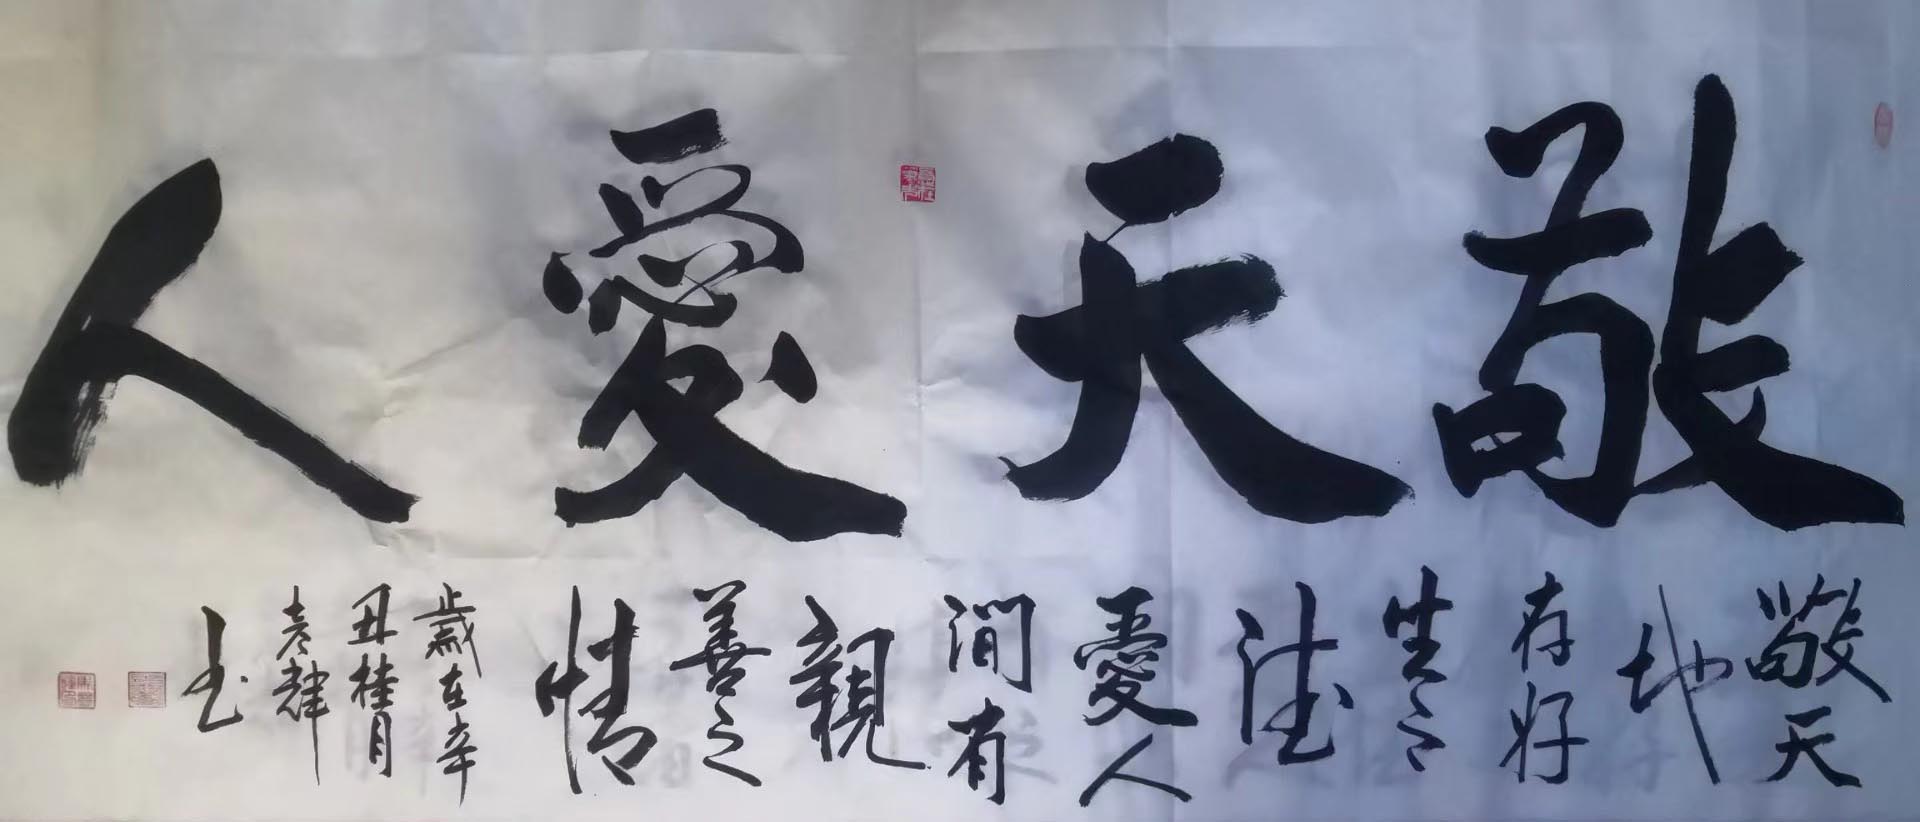 敬天愛人
敬天
地
存好
生之
德
愛人
間有
親
善之
情
歲在辛
丑桂月
彦肄
书